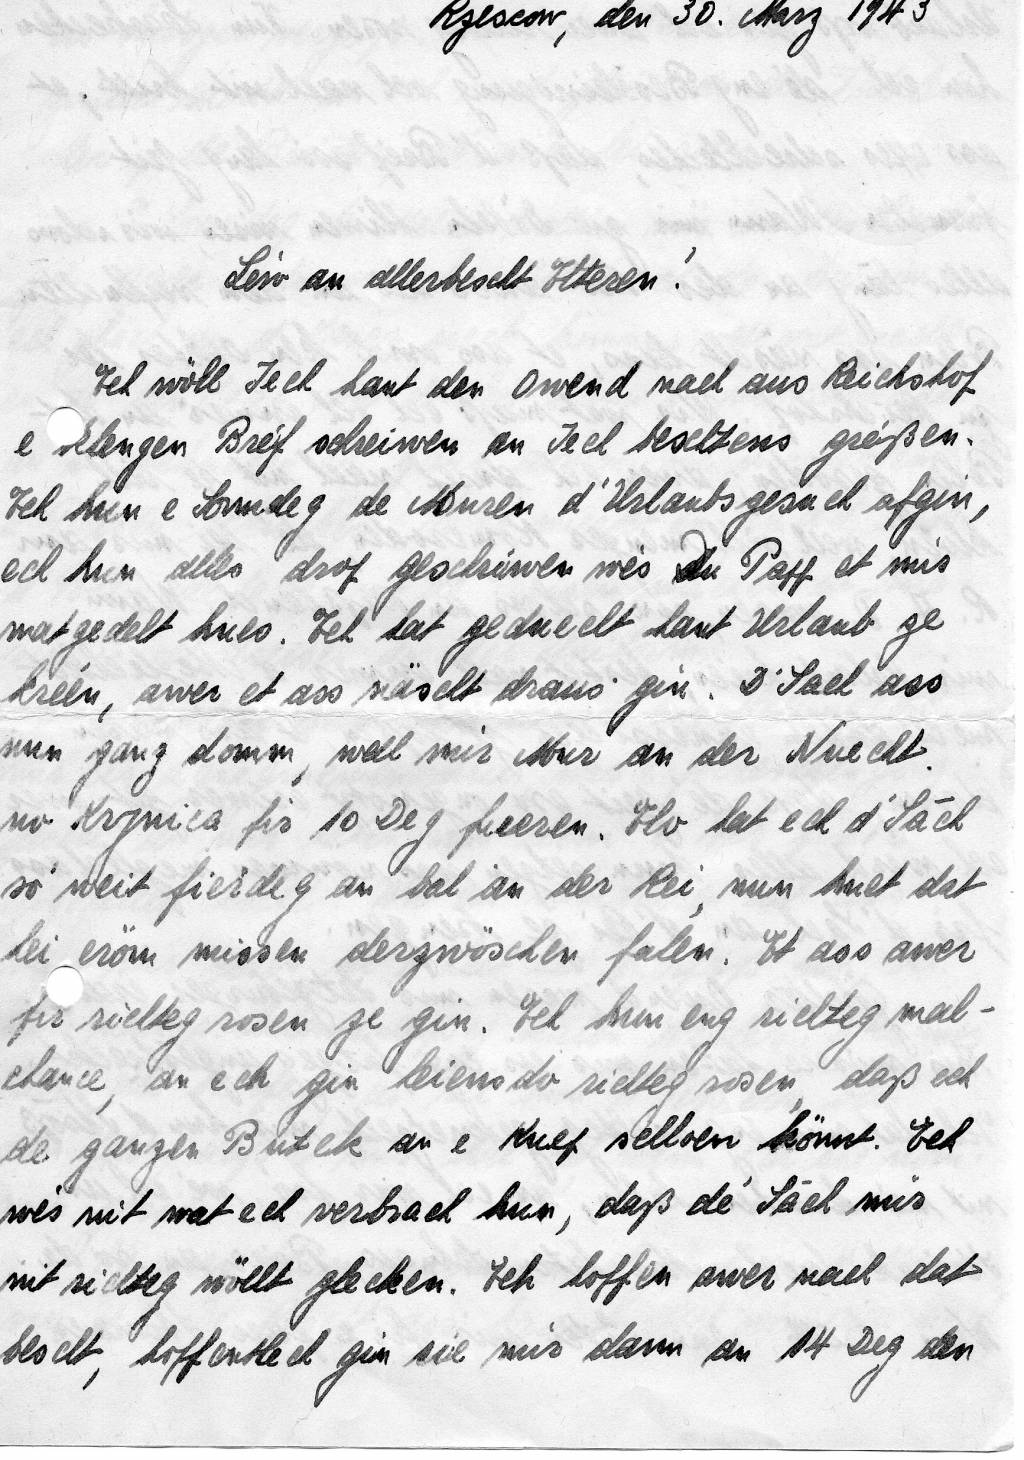 Rzescow, den 30. März 1943
Léiv an allerbescht Elteren!
Ech wöll Iech haut den Owend nach aus Reichshof
e klengen Bréif schreiwen an Iech beschtens gréißen.
Ech hun e Sonndeg de Muren d'Urlaubsgesuch ofgin,
ech hun alles drof geschriwen wés de Papp et mir
matgedelt hues. Ech hat geduecht haut Urlaub ze
kréén, awer et ass näscht draus gin. D'Sach ass
nun ganz domm, well mir Mur an der Nuecht
no Krynica fir 10 Deg fueren. Elo hat ech d'Säch
só weit fierdeg an bal an der Rei, nun huet dat
hei eröm missen derzwöschen falen. Et ass awer
fir richteg rosen ze gin. Ech hun eng richteg mal-
chance, an ech gin heiensdo richteg rosen, daß ech
de ganzen Buttek an e Knef schloen könnt. Ech
wés nit wat ech verbrach hun, daß dé Säch mir
nit richteg wöllt glecken. Ech hoffen awer nach dat
bescht, hoffentlech gin sie mir dann an 14 Deg den